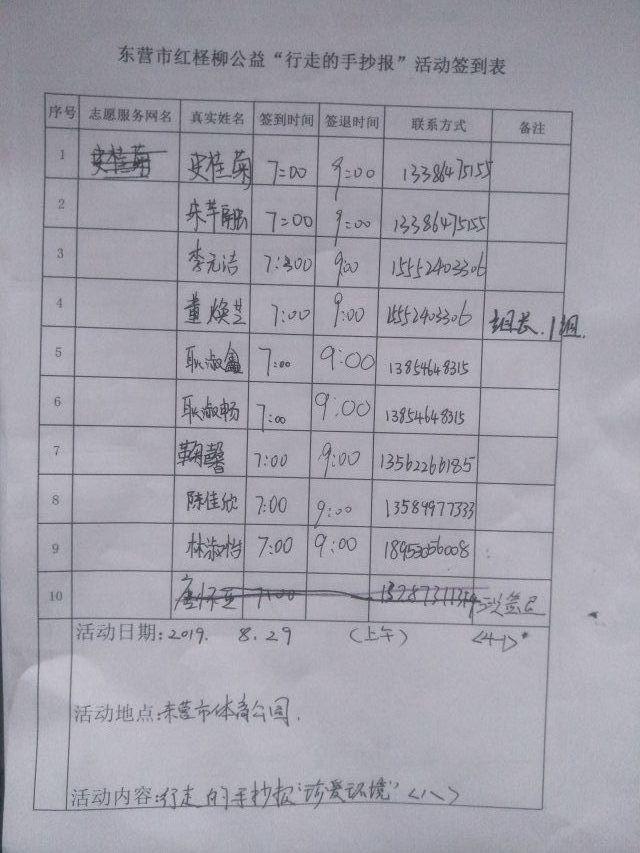 东营市红柽柳公益“行走的手抄报”活动签到表
序号 志愿服务网名 真实姓名 签到时间 签退时间 联系方式 备注
1 史桂菊 史桂菊 7:00 9:00 13386475155
2 7:00 9:00 13386475155
3 李元洁 7:300 9:00 15552403306
4 董焕芝 7:00 9:00 15552403306 组长.1组.
5 耿淑鑫 7:00 9:00 13854648315
6 耿淑畅 7:00 9:00 13854648315
7 鞠馨 7:00 9:00 13562266185
8 陈佳欣 7:00 9:00 13584977333
9 林淑怡 7:00 9:00 18953056008
10 7:00
活动日期: 2019. 8.29 (上午) <4-1>
活动地点: 东营市体育公园.
活动内容: 行走的手抄报“珍爱环境”<八>